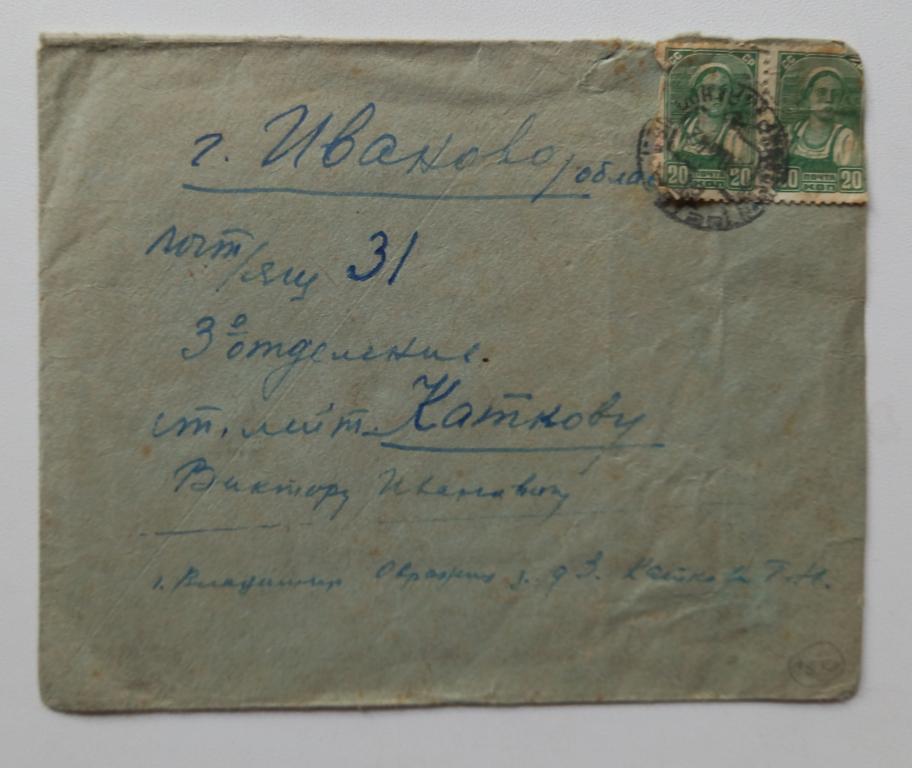 г. Иваново / облас
почт/ящ 31
3е отделение.
ст. лейт. Каткову
Виктору Ивановичу
г. Владимир Овражная д 3. Каткова Г.И.
20 20
ПОЧТА
КОП
20
ПОЧТА
КОП